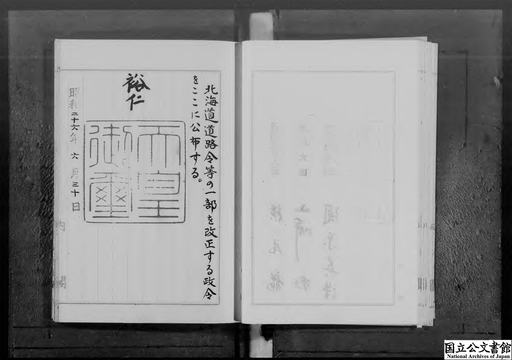 北海道道路令等の一部を改正する政令
をここに公布する。
裕仁
天皇
御璽
昭和二十六年六月三十日
内閣
国立公文書館
National Archives of Japan